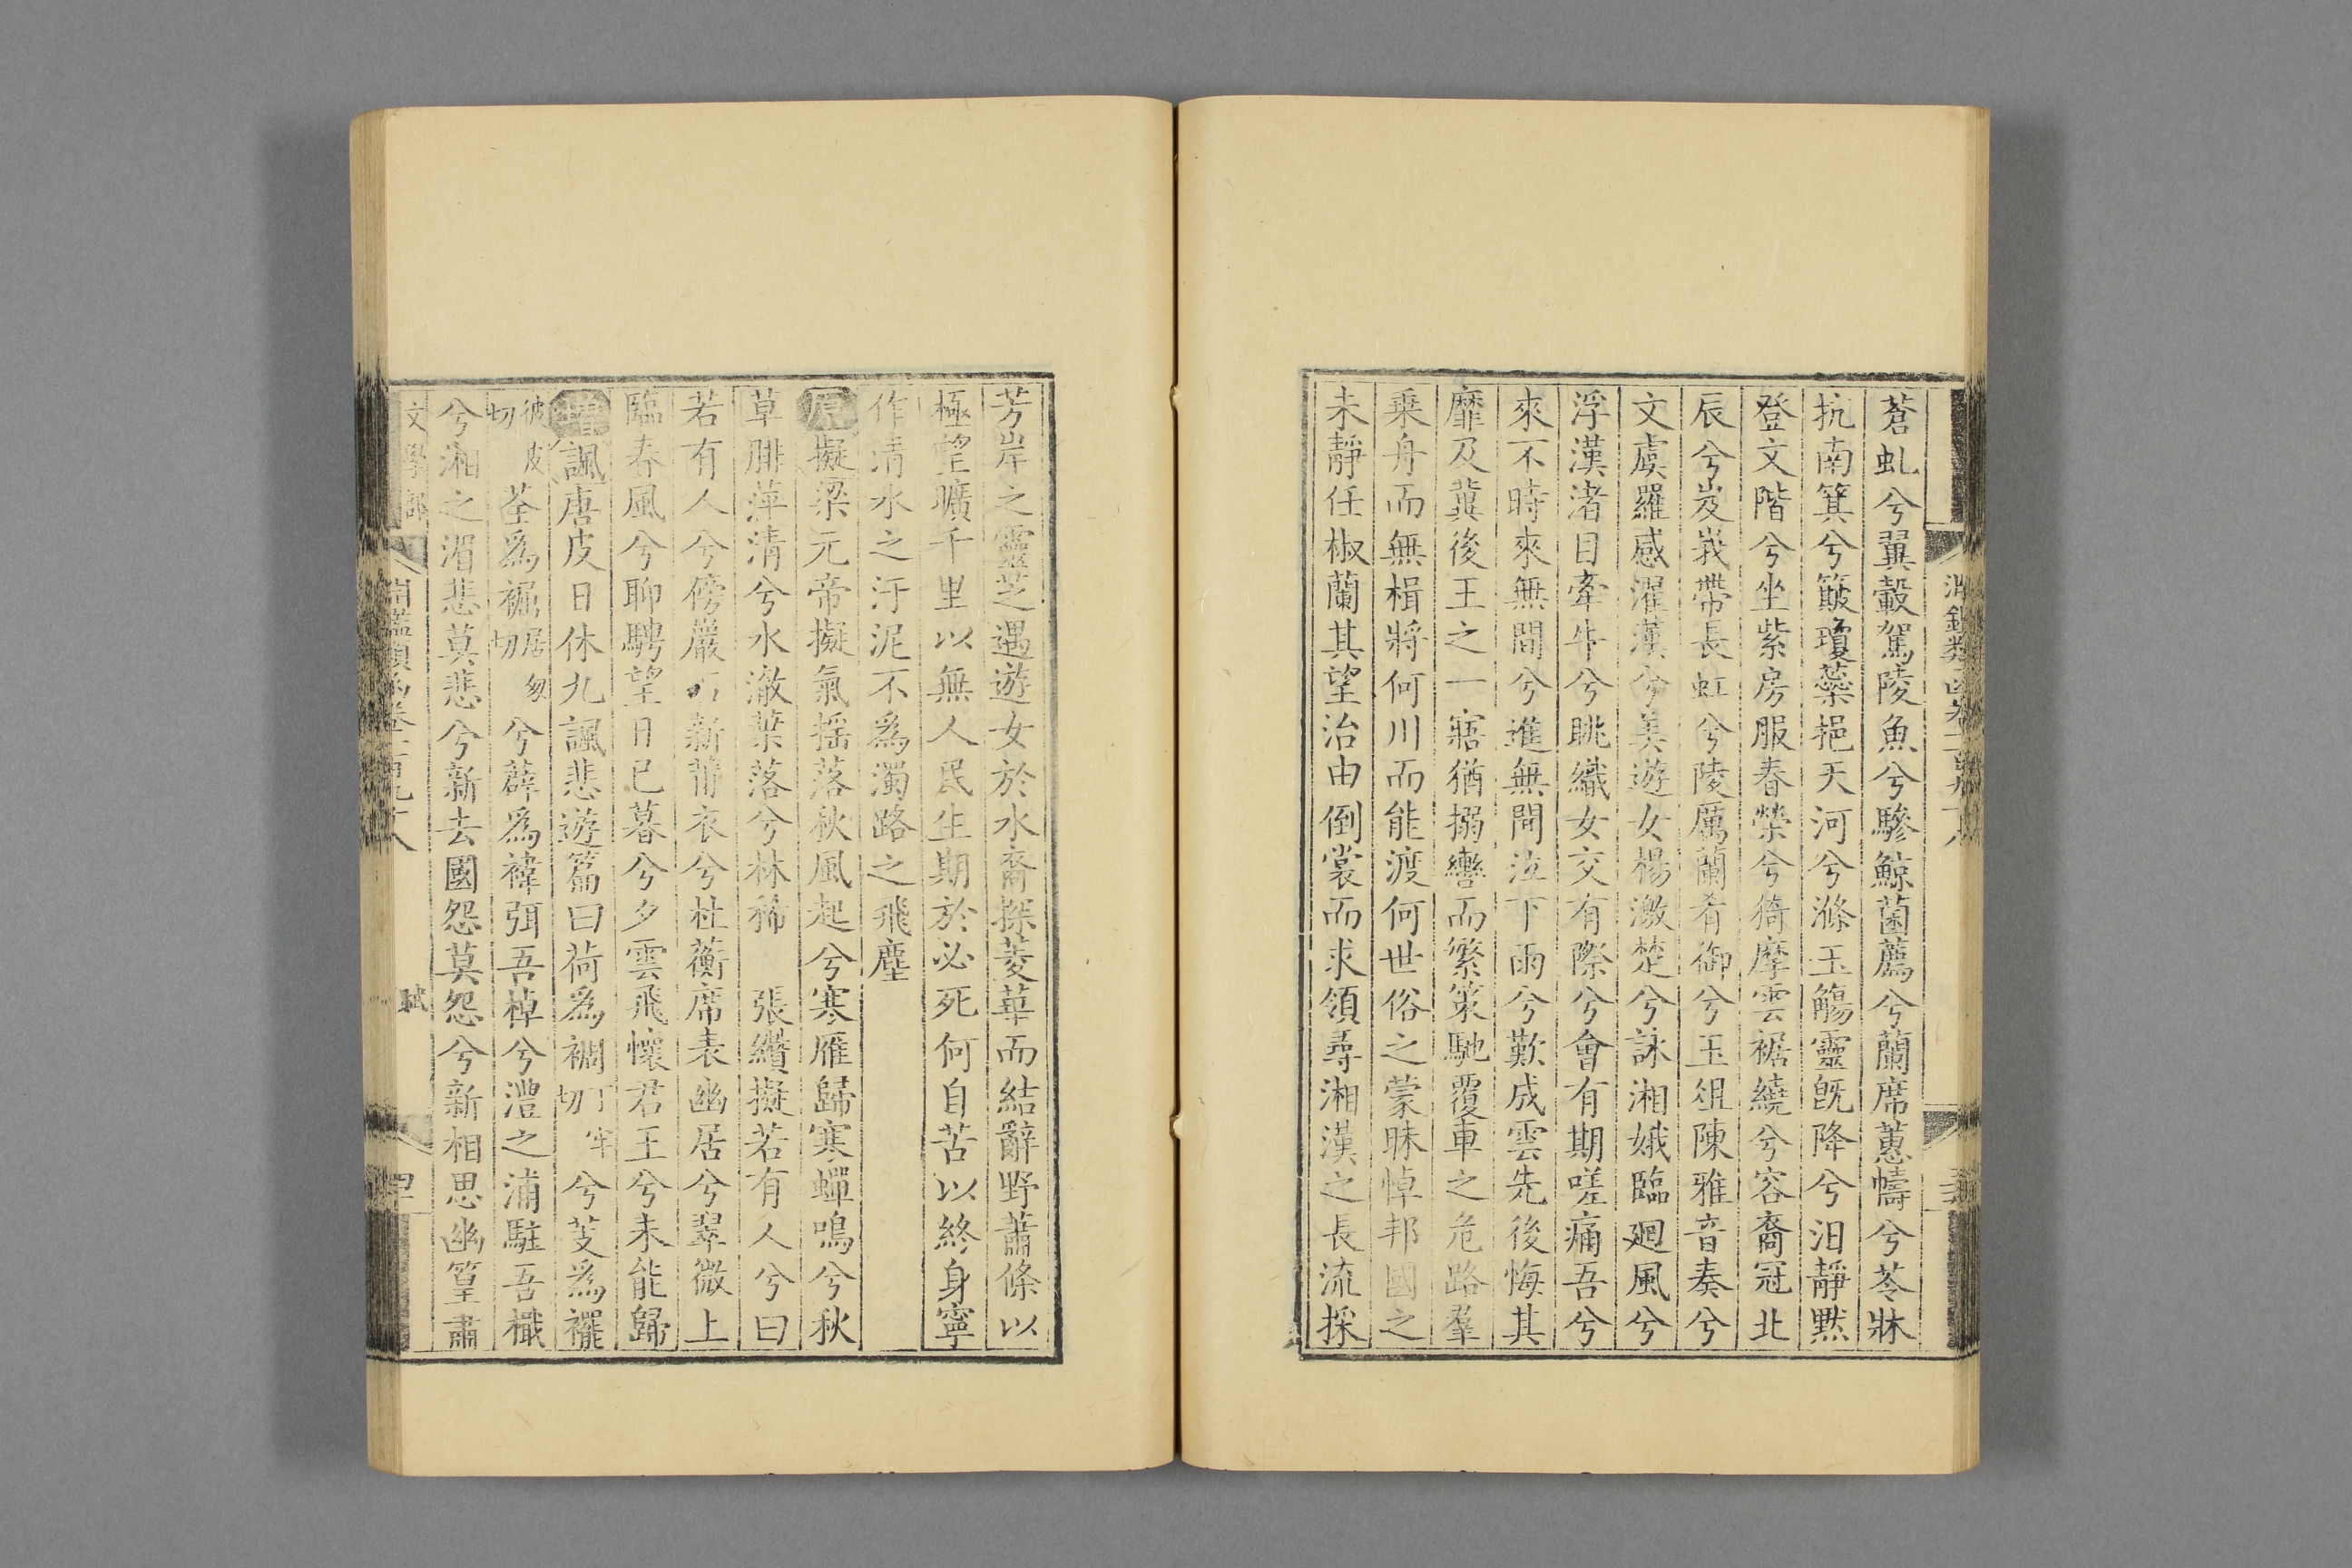 蒼虬兮翼轂駕陵魚兮驂鯨菌薦兮蘭席蕙幬兮苓牀
抗南箕兮簸瓊蘂挹天河兮滌玉觴靈既降兮泊靜默
登文階兮坐紫房服春榮兮猗摩雲裾繞兮容裔冠北
辰兮岌峩帶長虹兮陵厲蘭肴御兮玉俎陳雅音奏兮
文虡羅感濯漢兮美遊女楊激楚兮詠湘娥臨廻風兮
浮漢渚目牽牛兮眺織女交有際兮會有期嗟痛吾兮
來不時來無間兮進無聞泣下雨兮歎成雲先後悔其
靡及冀後王之一寤猶搦轡而繁策馳覆車之危路羣
乗舟而無楫將何川而能渡何世俗之蒙昧悼邦國之
未靜任椒蘭其望治由倒裳而求領尋湘漢之長流採
芳岸之靈芝遇遊女於水裔探菱華而結辭野蕭條以
極望曠千里以無人民生期於必死何自苦以終身寧
作清水之汙泥不爲濁路之飛塵
原擬梁元帝擬氣揺落秋風起兮寒雁歸寒蟬鳴兮秋
草腓萍清兮水澈葉落兮林稀 張纘擬若有人兮曰
若有人兮傍巖石新莆衣兮杜蘅席表幽居兮翠微上
臨春風兮聊騁望日已暮兮夕雲飛懷君王兮未能歸
增諷唐皮日休九諷悲遊篇曰荷爲裯丁牢切兮芰爲襬
彼皮切荃爲裾居匆切兮薜爲褘弭吾棹兮澧之浦駐吾檝
兮湘之湄悲莫悲兮新去國怨莫怨兮新相思幽篁肅
文學部 賦